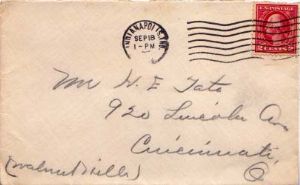 INDIANAPOLIS, IND.
SEP 18
1-PM
U.S. POSTAGE
2 CENTS 2
Mr W E Tate
920 Lincoln Ave
Cincinnati,
O
(Walnut Hills)